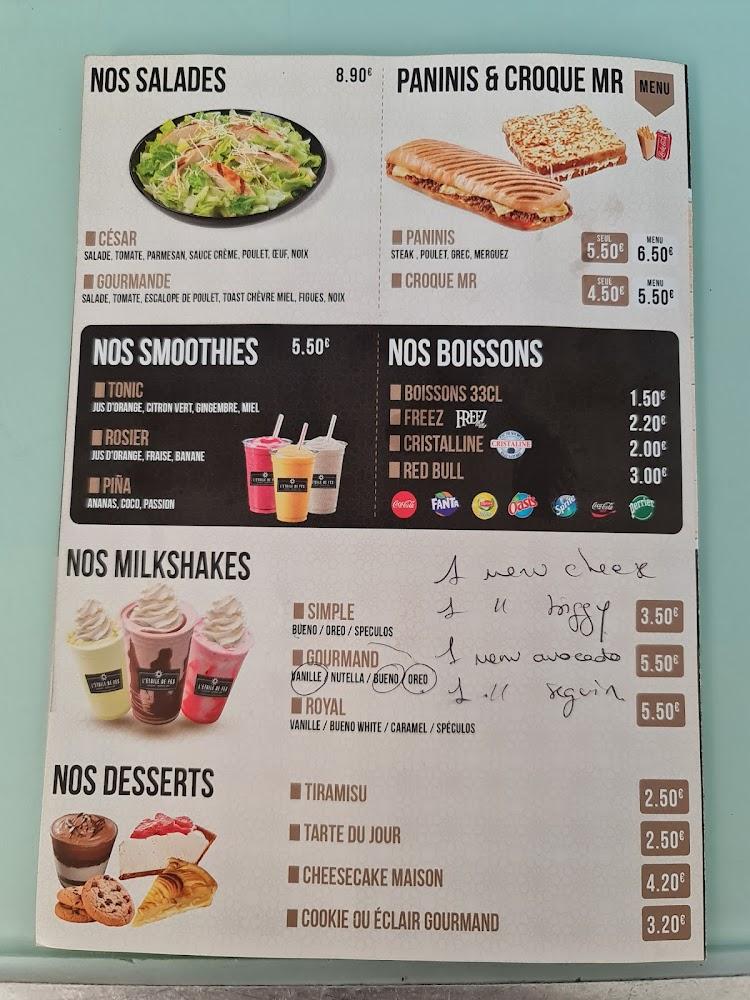 NOS SALADES 8.90€
CÉSAR
SALADE, TOMATE, PARMESAN, SAUCE CRÈME, POULET, ŒUF, NOIX
GOURMANDE
SALADE, TOMATE, ESCALOPE DE POULET, TOAST CHÈVRE MIEL, FIGUES, NOIX
PANINIS & CROQUE MR MENU
PANINIS SEUL 5.50€ MENU 6.50€
STEAK , POULET, GREC, MERGUEZ
CROQUE MR SEUL 4.50€ MENU 5.50€
NOS SMOOTHIES 5.50€
TONIC
JUS D'ORANGE, CITRON VERT, GINGEMBRE, MIEL
ROSIER
JUS D'ORANGE, FRAISE, BANANE
PIÑA
ANANAS, COCO, PASSION
NOS BOISSONS
BOISSONS 33CL 1.50€
FREEZ FREEZ 2.20€
CRISTALLINE CRISTALINE 2.00€
RED BULL 3.00€
Coca-Cola FANTA Lipton Oasis Sprite Coca-Cola Perrier
NOS MILKSHAKES
1 menu cheese
1 " biggy
1 menu avocado
1 " seguin
SIMPLE 3.50€
BUENO / OREO / SPECULOS
GOURMAND 5.50€
VANILLE / NUTELLA / BUENO / OREO
ROYAL 5.50€
VANILLE / BUENO WHITE / CARAMEL / SPÉCULOS
L'ÉTOILE DE FES
L'ÉTOILE DE FES
L'ÉTOILE DE FES
NOS DESSERTS
TIRAMISU 2.50€
TARTE DU JOUR 2.50€
CHEESECAKE MAISON 4.20€
COOKIE OU ÉCLAIR GOURMAND 3.20€